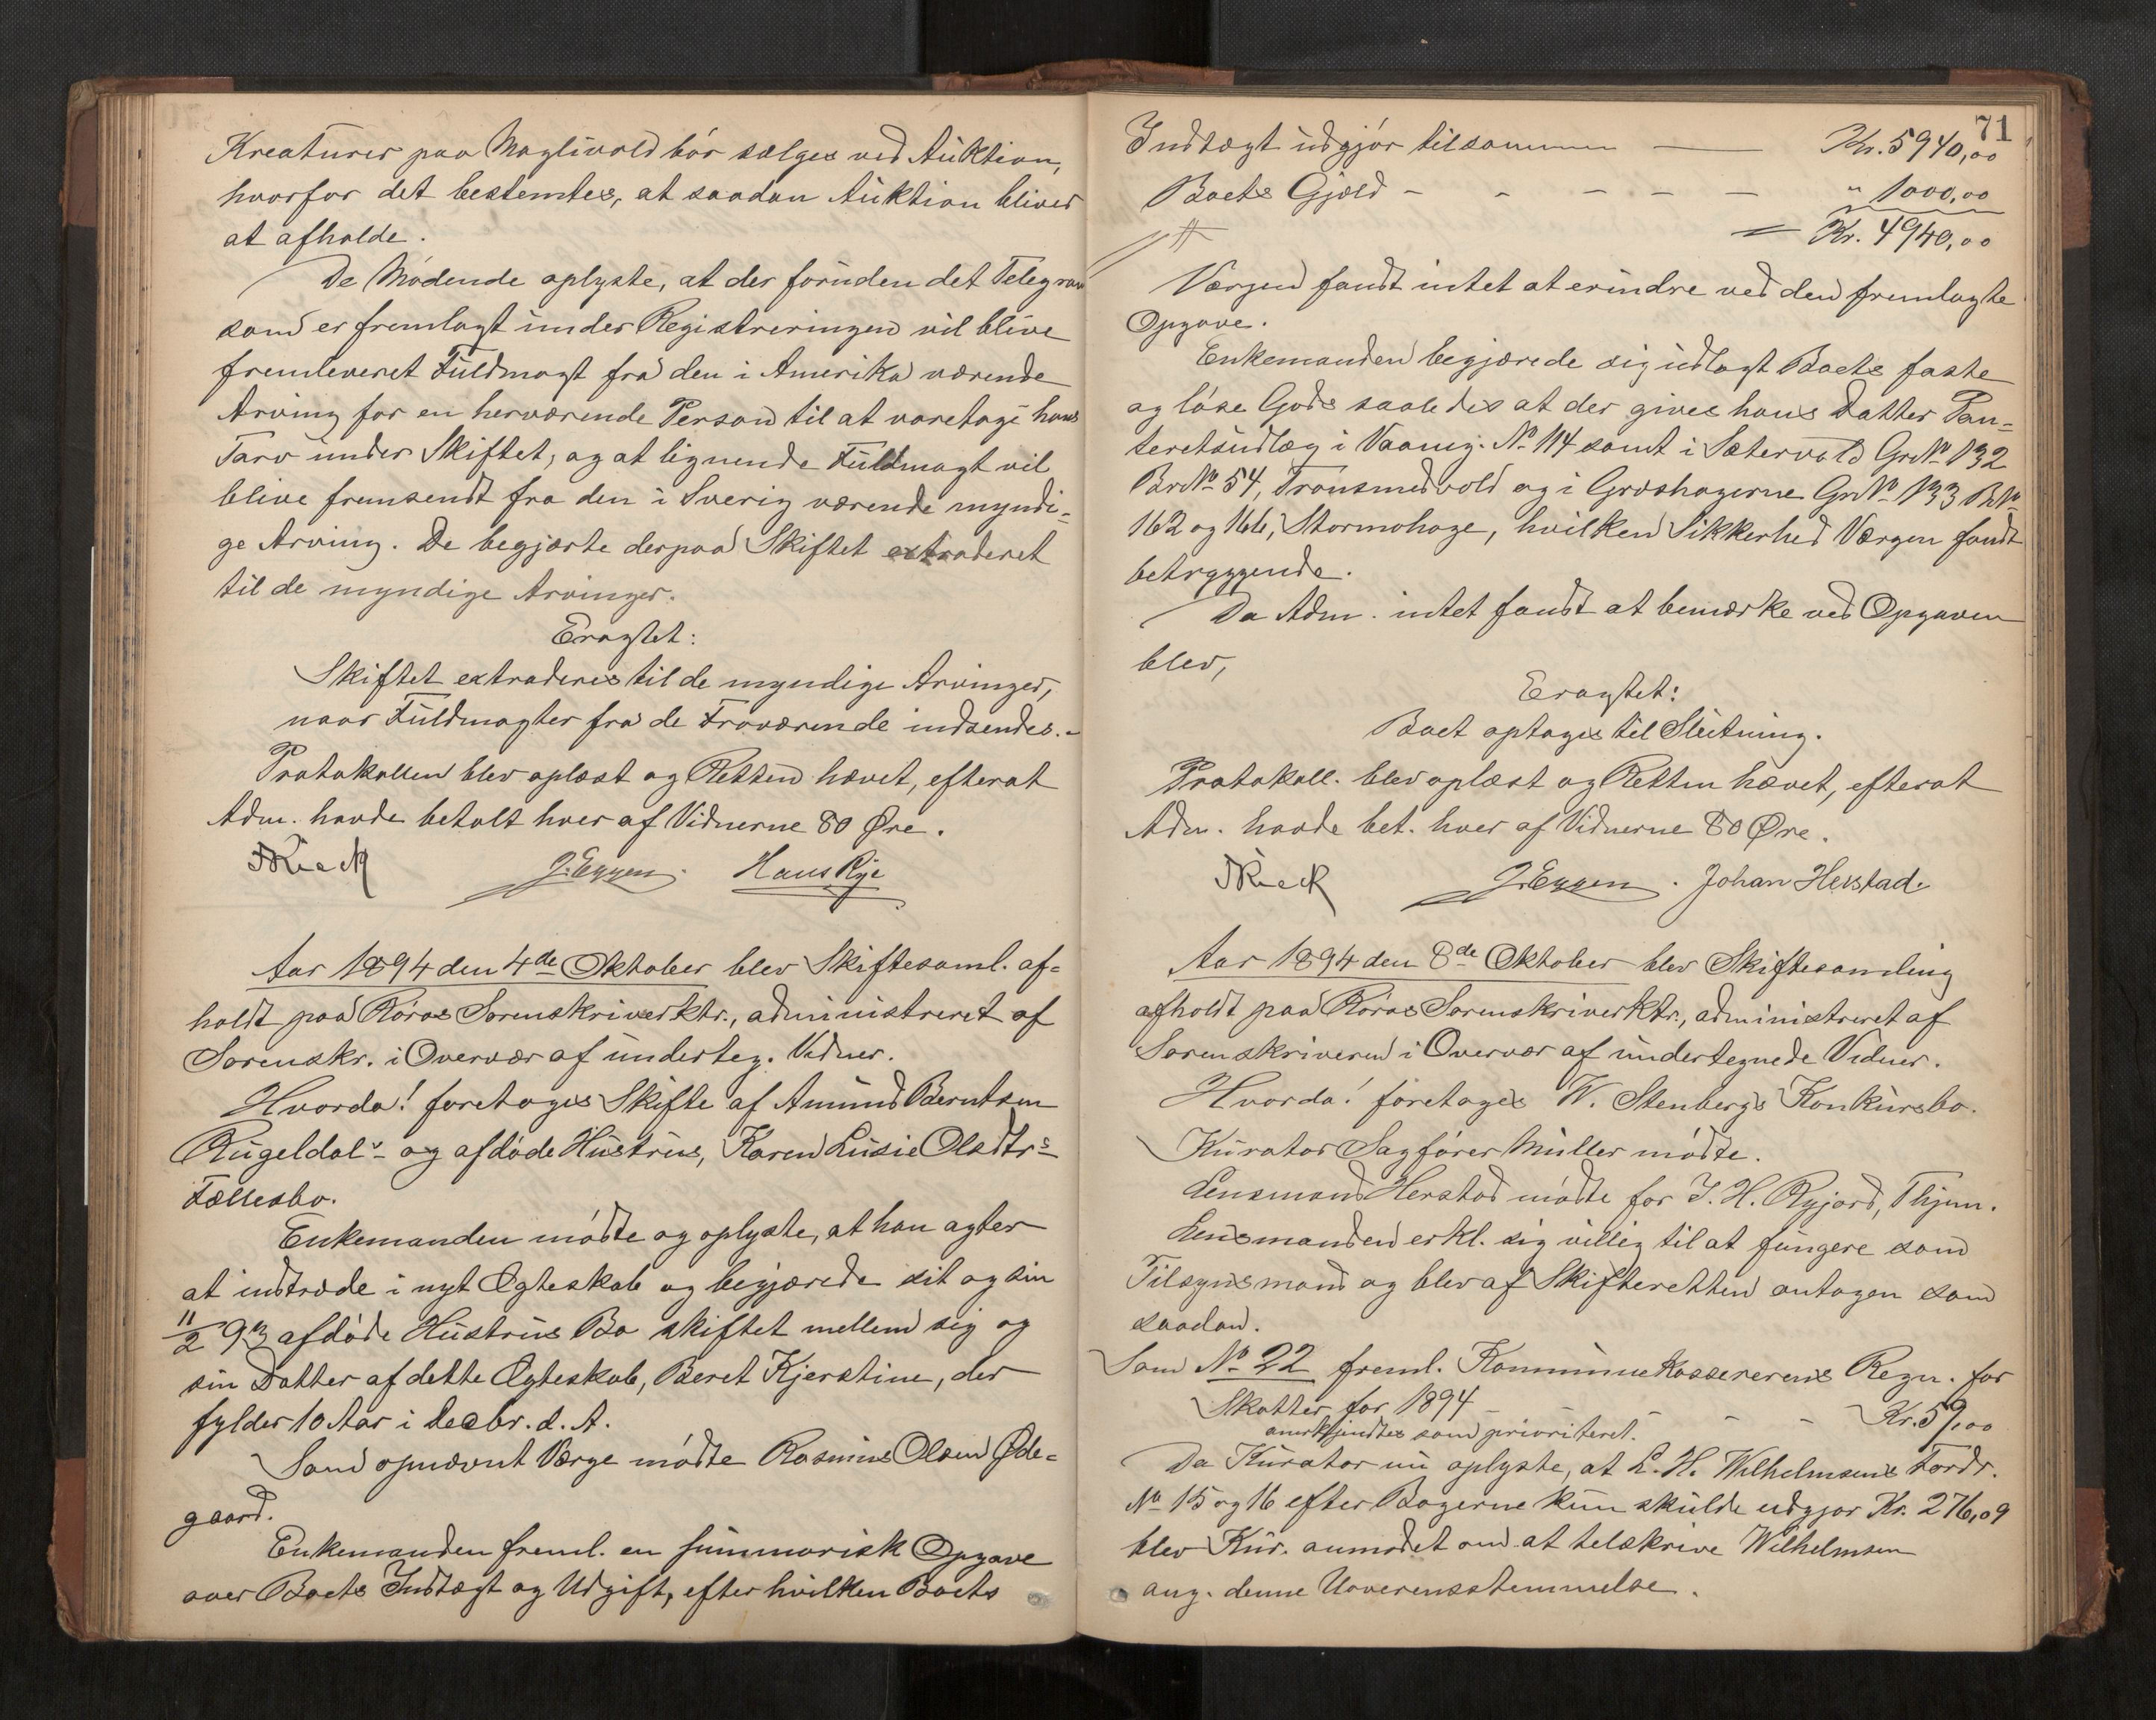 Kreaturer paa Moglivold bör sælges ved Auktion,
hvorfor det bestemtes, at saadan Auktion bliver
at afholde.
De Mödende oplyste, at der foruden det Telegram
som er fremlagt under Registreringen vil blive
fremleveret Fuldmagt fra den i Amerika værende
Arving for en herværende Person til at varetage hans
Tarv under Skiftet, og at lignende Fuldmagt vil
blive fremsendt fra den i Sverig værende myndi-
ge Arving. De begjærte derpaa Skiftet extraderet
til de myndige Arvinger.
Eragtet:
Skiftet extraderes til de myndige Arvinger,
naar Fuldmagter fra de Fraværende indsendes.-
Protokollen blev oplæst og Retten hævet, efterat
Adm. havde betalt hver af Vidnerne 80 Øre.
J. Eggen. Hans Rye
Aar 1894 den 4de Oktober blev Skiftesaml. af-
holdt paa Röros Sorenskriverktr., administreret af
Sorenskr. i Overvær af underteg. Vidner.
Hvorda! foretoges Skifte af Amund Berntsen
Rugeldals og afdöde Hustrus, Karen Lusie Olsdtrs
Fællesbo.
Enkemanden mödte og oplyste, at han agter
at indtræde i nyt Ægteskab og begjærede sit og sin
11/2 93 afdöde Hustrus Bo skiftet mellem sig og
sin Datter af dette Ægteskab, Beret Kjerstine, der
fylder 10 Aar i Decbr. d. A.
Som opnævnt Værge mödte Rasmus Olsen Øde-
gaard.
Enkemanden freml. en summarisk Opgave
over Boets Indtægt og Udgift, efter hvilken Boets
71
Indtægt udgjör tilsammen — Kr. 5940,00
Boets Gjæld - - - - - " 1000,00
= Kr. 4940,00
Værgen fandt intet at erindre ved den fremlagte
Opgave.
Enkemanden begjærede sig udlagt Boets faste
og löse Gods saaledes at der gives hans Datter Pan-
teretsudlæg i Vaaning. No 114 samt i Sætervold GrNo 132
BrNo 54, Transmedvold og i Græshagerne GrNo 133 BrNo
162 og 166, Stormohage, hvilken Sikkerhed Værgen fandt
betryggende.
Da Adm. intet fandt at bemærke ved Opgaven
blev,
Eragtet:
Boet optages til Slutning.
Protokoll. blev oplæst og Retten hævet, efterat
Adm. havde bet. hver af Vidnerne 80 Øre.
J. Eggen. Johan Herstad.
Aar 1894 den 8de Oktober blev Skiftesamling
afholdt paa Röros Sorenskriverktr., administreret af
Sorenskriveren i Overvær af undertegnede Vidner.
Hvorda! foretoges W. Stenbergs Konkursbo.
Kurator Sagförer Müller mödte.
Lensmand Herstad mödte for J. H. Ryjord, Thjem.
Lensmanden erkl. sig villig til at fungere som
Tilsynsmand og blev af Skifteretten antagen som
saadan.
Som No 22 freml. Kommunekassererens Regn. for
Skatter for 1894 - - - - Kr. 59,00
anerkjendtes som prioriteret.
Da Kurator nu oplyste, at L. H. Wilhelmsens Fordr.
No 15 og 16 efter Bøgerne kun skulde udgjør Kr. 276,09
blev Kur. anmodet om at tilskrive Wilhelmsen
ang. denne Uoverensstemmelse.